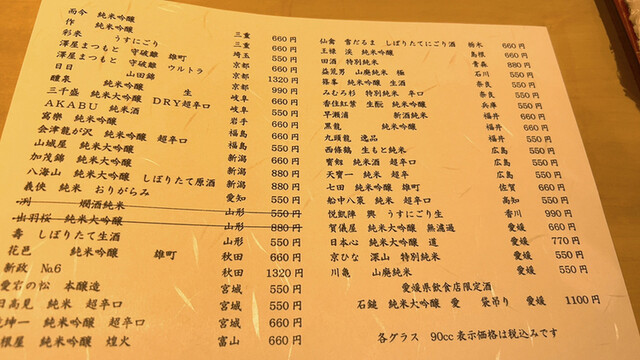 而今 純米吟醸 三重 660円
作 純米吟醸 三重 660円
彩來 うすにごり 埼玉 550円
澤屋まつもと 守破離 雄町 京都 660円
澤屋まつもと 守破離 ウルトラ 京都 1320円
日日 山田錦 京都 990円
醴泉 純米吟醸 生 岐阜 660円
三千盛 純米大吟醸 DRY超辛口 岐阜 550円
AKABU 純米酒 岩手 660円
寫樂 純米吟醸 福島 660円
会津龍が沢 純米吟醸 超辛口 福島 550円
山城屋 純米大吟醸 新潟 550円
加茂錦 純米大吟醸 新潟 880円
八海山 純米吟醸 しぼりたて原酒 新潟 880円
義侠 純米 おりがらみ 愛知 550円
冽 燗酒純米 山形 550円
出羽桜 純米大吟醸 山形 880円
寿 しぼりたて生酒 山形 550円
花邑 純米吟醸 雄町 秋田 660円
新政 No.6 秋田 1320円
愛宕の松 本醸造 宮城 550円
日高見 純米 超辛口 宮城 550円
乾坤一 純米吟醸 超辛口 宮城 660円
根屋 純米吟醸 煌火 富山 660円
仙禽 雪だるま しぼりたてにごり酒 栃木 660円
王祿 渓 純米吟醸 島根 660円
田酒 特別純米 青森 880円
益荒男 山廃純米 極 石川 550円
篠峯 純米吟醸 生酒 奈良 550円
みむろ杉 特別純米 辛口 奈良 550円
香住鶴 生酛 純米吟醸 兵庫 550円
早瀬浦 新酒純米 福井 550円
黒龍 純米吟醸 福井 660円
九頭龍 逸品 福井 550円
西條鶴 生もと純米 広島 550円
寳剱 純米酒 超辛口 広島 550円
天寶一 純米 超辛 広島 550円
七田 純米吟醸 雄町 佐賀 660円
船中八策 純米 超辛口 高知 550円
悦凱陣 興 うすにごり生 香川 990円
賀儀屋 純米大吟醸 無濾過 愛媛 660円
日本心 純米大吟醸 道 愛媛 770円
京ひな 深山 特別純米 愛媛 550円
川亀 山廃純米 愛媛 550円
愛媛県飲食店限定酒
石鎚 純米大吟醸 愛 袋吊り 愛媛 1100円
各グラス 90cc 表示価格は税込みです